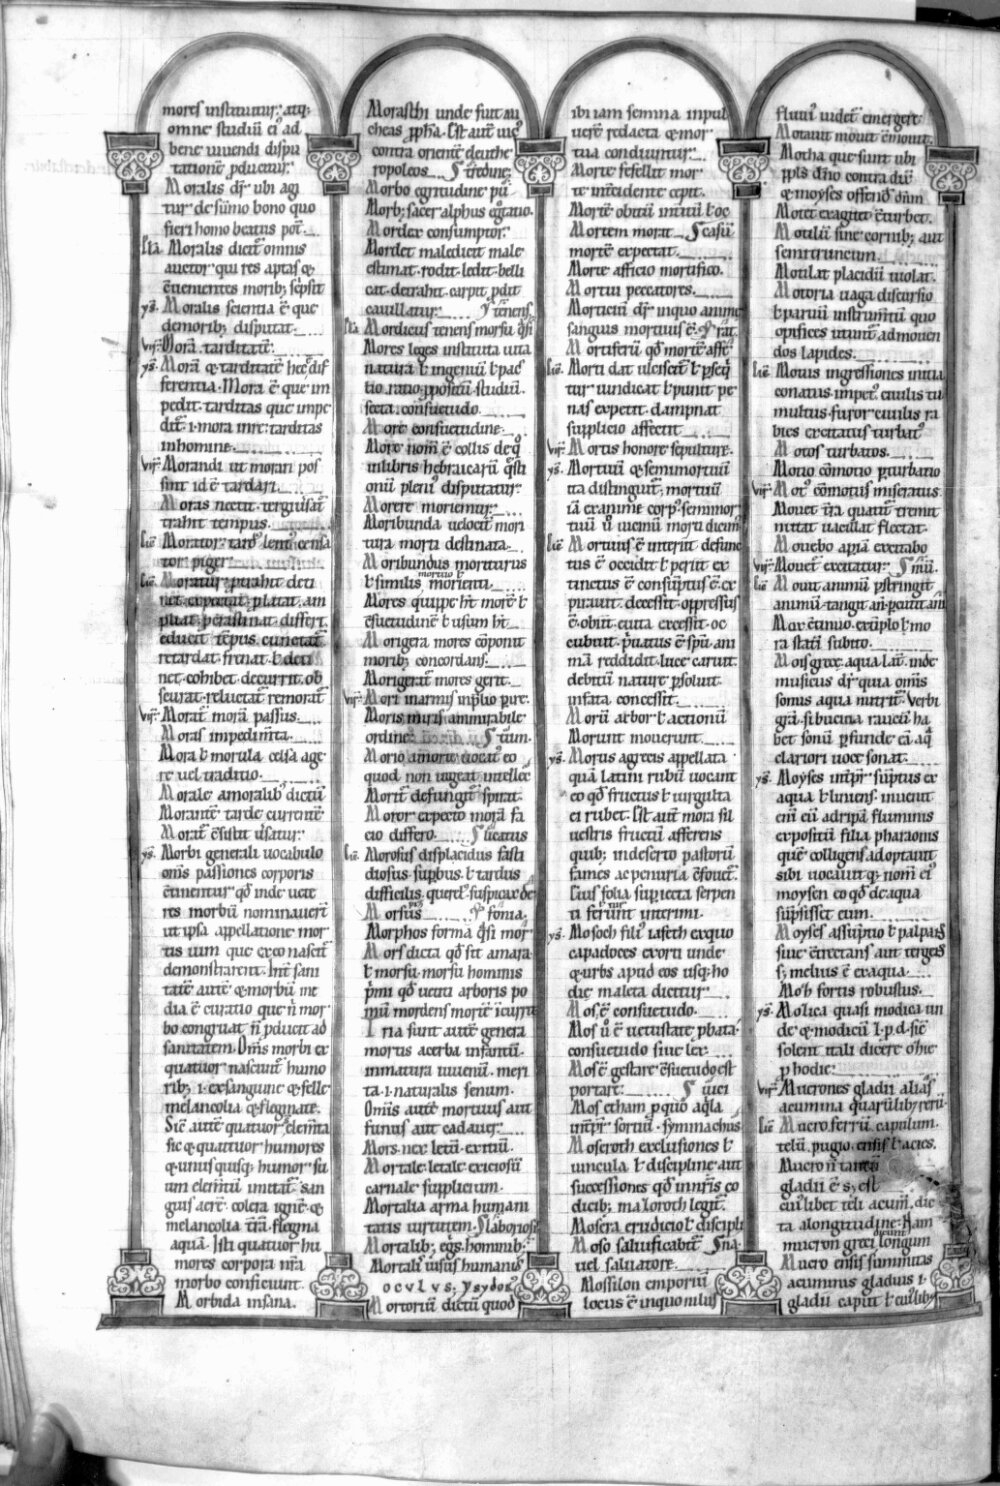 mores instituuntur: atq;
omne studiū ei' ad
bene uiuendi dispu
tationē ꝓducitur.
Moralis dr̄ ubi agi
tur de sūmo bono quo
fieri homo beatus pot̄.
Moralis dicit̄ omnis
auctor qui res aptas &
ꝯuenientes morib; scͥpsit
ys. Moralis scientia ē que
demorib; disputat.
uir̄. Mora. tarditate.
ys. Morā & tarditatē hec dif
ferentia. Mora ē que im
pedit. tarditas que impe
dit̄. i. mora in re: tarditas
inhomine.
uir̄. Morandi ut morari pos
sint id ē tardari.
Moras nectit. tergiuersat̄
trahit tempus.
Morator. tard' lent' cessa
tor piger
Moratur. ꝑtrahit deti
net. expectat. ꝓlatat. am
pliat. perastinat. differt.
educit tēpus. cunctat̄
retardat. frenat. ł deti
net. cohibet. decurrit. ob
seurat. reluctat̄ remorat̄
uir̄. Morat̄ morā passus.
Moras impedim̄ta.
Mora ł morula celsa age
re uel traditio.
Morale amoralib' dictū
Morante tarde currente
Morat̄ ꝯsistit uersatur.
ys. Morbi generali uocabulo
om̄s passiones corporis
ꝯtinentur qd̄ inde uete
res morbū nominauert̄
ut ipsa appellatione mor
tis uim que ex eo nascit̄
demonstrarent. Int̄ sani
tatē autē & morbū me
dia ē curatio que n̄ mor
bo congruat n̄ ꝓducit ad
sanitatem. Om̄s morbi ex
quatuor nascunt̄ humo
rib; .i. ex sanguine & felle
melancolia & flegmate.
Sic̄ autē quatuor elem̄ta
sic & quatuor humores
& unusquisq; humor su
um elem̄tū imitat̄. san
guis aerē. colera ignē. &
melancolia t̄rā. flegma
aquā. Isti quatuor hu
mores corpora nr̄a
morbo conficiunt.
Morbida insana.
Morasthi unde fuit mi
cheas ꝓph̄a. Est autē uic'
contra orientē eleuthe
ropoleos.
Morbo egritudine
Morb; sacer alphus
Mordex consumptor.
Mordet maledicit male
estimat. rodit. ledit. belli
cat. detrahit. carpit. ꝓdit
cauillatur. tenens.
Mordicus tenens morsu q̄si
Mores leges instituta uita
natura ł ingeniū ł pac
tio. ratio. ꝓpositū. studiū.
secta. consuetudo.
More consuetudine.
More nom̄ ē collis de q'
inlibris hebraicarū q̄sti
onū pleni' disputatur.
Morere morientur.
Moribunda uelociter mori
tura morti destinata.
Moribundus moriturus
ł similis morienti.
mortuo ł
Mores quippe ht̄ morē ł
ꝯsuetudinē ł usum ht̄.
Morigera mores cōponit
morib; concordans.
Morigerat̄ mores gerit.
uir̄. Mori inarmis inꝓlio ꝑire.
Moris miris ammirabile
ordine.
Morio amorte uocat' eo
quod non uigeat intellec
Morit̄ defungit̄ spirat.
Moror expecto morā fa
cio differo.
Morosus displacidus fasti
diosus suꝑbus. ł tardus
difficilis. querel'. suspicax
Morsus
Morphos forma
Mors dicta qd̄ sit amara.
ł morsu. morsu hominis
p̄mi qd̄ uetiti arboris po
mū mordens mortē īcurrit
Tria sunt autē genera
mortis acerba infantū.
inmatura iuuenū. meri
ta .i. naturalis senum.
Omīs autē mortuus aut
funus aut cadauer.
Mors. nex letū. exitiū.
Mortale. letale. exiciosū
carnale supplicium.
Mortalia arma humani
tatis uirtutem.
Mortalib; egris. hominib;
Mortali uisus humanus
oculus. ysydor'
Mortoriū dictū quod
ibi iam semina inpul
uerē redacta & mor
tua condiuntur.
Morte fefellit mor
te incidente cepit.
Mortē obitū intitū ł oc
Mortem morat̄
mortē expectat.
Morte afficio mortifico.
Mortui peccatores.
Morticinū dr̄. inquo animę
sanguis mortuus ē.
Mortiferū qd̄ mortē affert
Morti dat ulciscit̄ ł ꝑseq̄
tur uindicat ł punit pe
nas expetit. dampnat
supplicio affectū
uir̄. Mortis honore sepulture.
ys. Mortuū & semimortuū
ita distinguit̄. mortuū
iā exanime corp'. semimor
tuū u' uiuum mori dicim'
Mortuus ē interiit defunc
tus ē occidit ł periit ex
tinctus ē consūptus ē. ex
pirauit. decessit. oppressus
ē. obiit. euita excessit. oc
cubuit. p̄uatus ē spū. ani
mā reddidit. luce caruit.
debitū nature ꝑsoluit.
infata concessit.
Morū arbor ł actionū
Morunt mouerunt.
ys. Morus agrecis appellata
quā latini rubū uocant
eo qd̄ fructus ł uirgulta
ei rubet. Est autē mora sil
uestris fructū afferens
quib; indeserto pastorū
fames ac penuria ꝯfouet̄.
Cuius folia suꝑiecta serpen
ti ferunt interimi.
ys. Mosoch fili' iafeth exquo
capadoces exorti unde
& urbs apud eos usq; ho
die maleta dicitur.
Mos ē consuetudo.
Mos u' ē uetustate ꝓbata
consuetudo siue lex.
Mos ē gestare ꝯsuetudo est
portare.
Mos etham ꝑ quo aqla
int̄pr̄ sortiū. symmachus
Moseroth exclusiones ł
uincula ł discipline aut
successiones qd̄
dicib; masoroth legit̄.
Mosera eruditio ł discipli
Moso saluificabit̄
uel saluatore.
Mossilon emporiū
locus ē inquo nilus
fluui' uidet̄ emergere
Motauit mouet ꝯmouit.
Motha que sunt ubi
ppls dn̄o contra dix̄
& moyses offend'
Motet exagitet ꝯturbet.
Motilū sine cornib; aut
semitruncum.
Motilat placidū uiolat.
Motoria uaga discursio
ł paruū instrumtū quo
opifices utunt̄ admouen
dos lapides.
Motus ingressiones initia
conatus. impet'. ciuilis tu
multus. furor. ciuilis ra
bies. excitatus. turbat'
Motos turbatos.
Motio cōmotio ꝑturbatio
uir̄. Mot' cōmotus miseratus
Mouet tr̄a quatit̄ tremit
nutat uacillat flectat.
Mouebo apiā excitabo
uir̄. Mouet̄ excitatur.
Mouit animū ꝑstringit
animū. tangit
Mox ꝯtinuo. extēplo ł mo
ra statī subito.
Mois grece aqua latī. inde
musicus dr̄ quia om̄is
sonus aqua nutrit̄. Verbi
grā. si bucina raucū ha
bet sonū ꝑfunde eā aq̄
clariori uoce sonat.
ys. Moyses int̄pr̄ sūptus ex
aqua ł liniens. inuenit
enī eū adripā fluminis
expositū filia pharaonis
quē colligens adoptauit
sibi uocauitq; nom̄ ei'
moysen eo qd̄ de aqua
sūpsisset eum.
Moyses assūptio ł palpans
siue ꝯtrectans aut tergens
s; melius ē ex aqua.
Mob fortis robustus.
ys. Molica quasi modica un
de & modicū .l. p. d. sic̄
solent itali dicere o hie
ꝓ hodie.
uir̄. Mucrones gladii alias
acumina quarūlib; rerū
Mucro ferrū. capulum.
telū. pugio. ensis ł acies.
Mucro n̄ tantū
gladii ē s; est
cui'libet teli acum̄. dic
ta alongitudine. Nam
mucron greci longum
dicunt
Mucro ensis summitas
acuminis gladius .i.
gladii caput ł cui'lib;